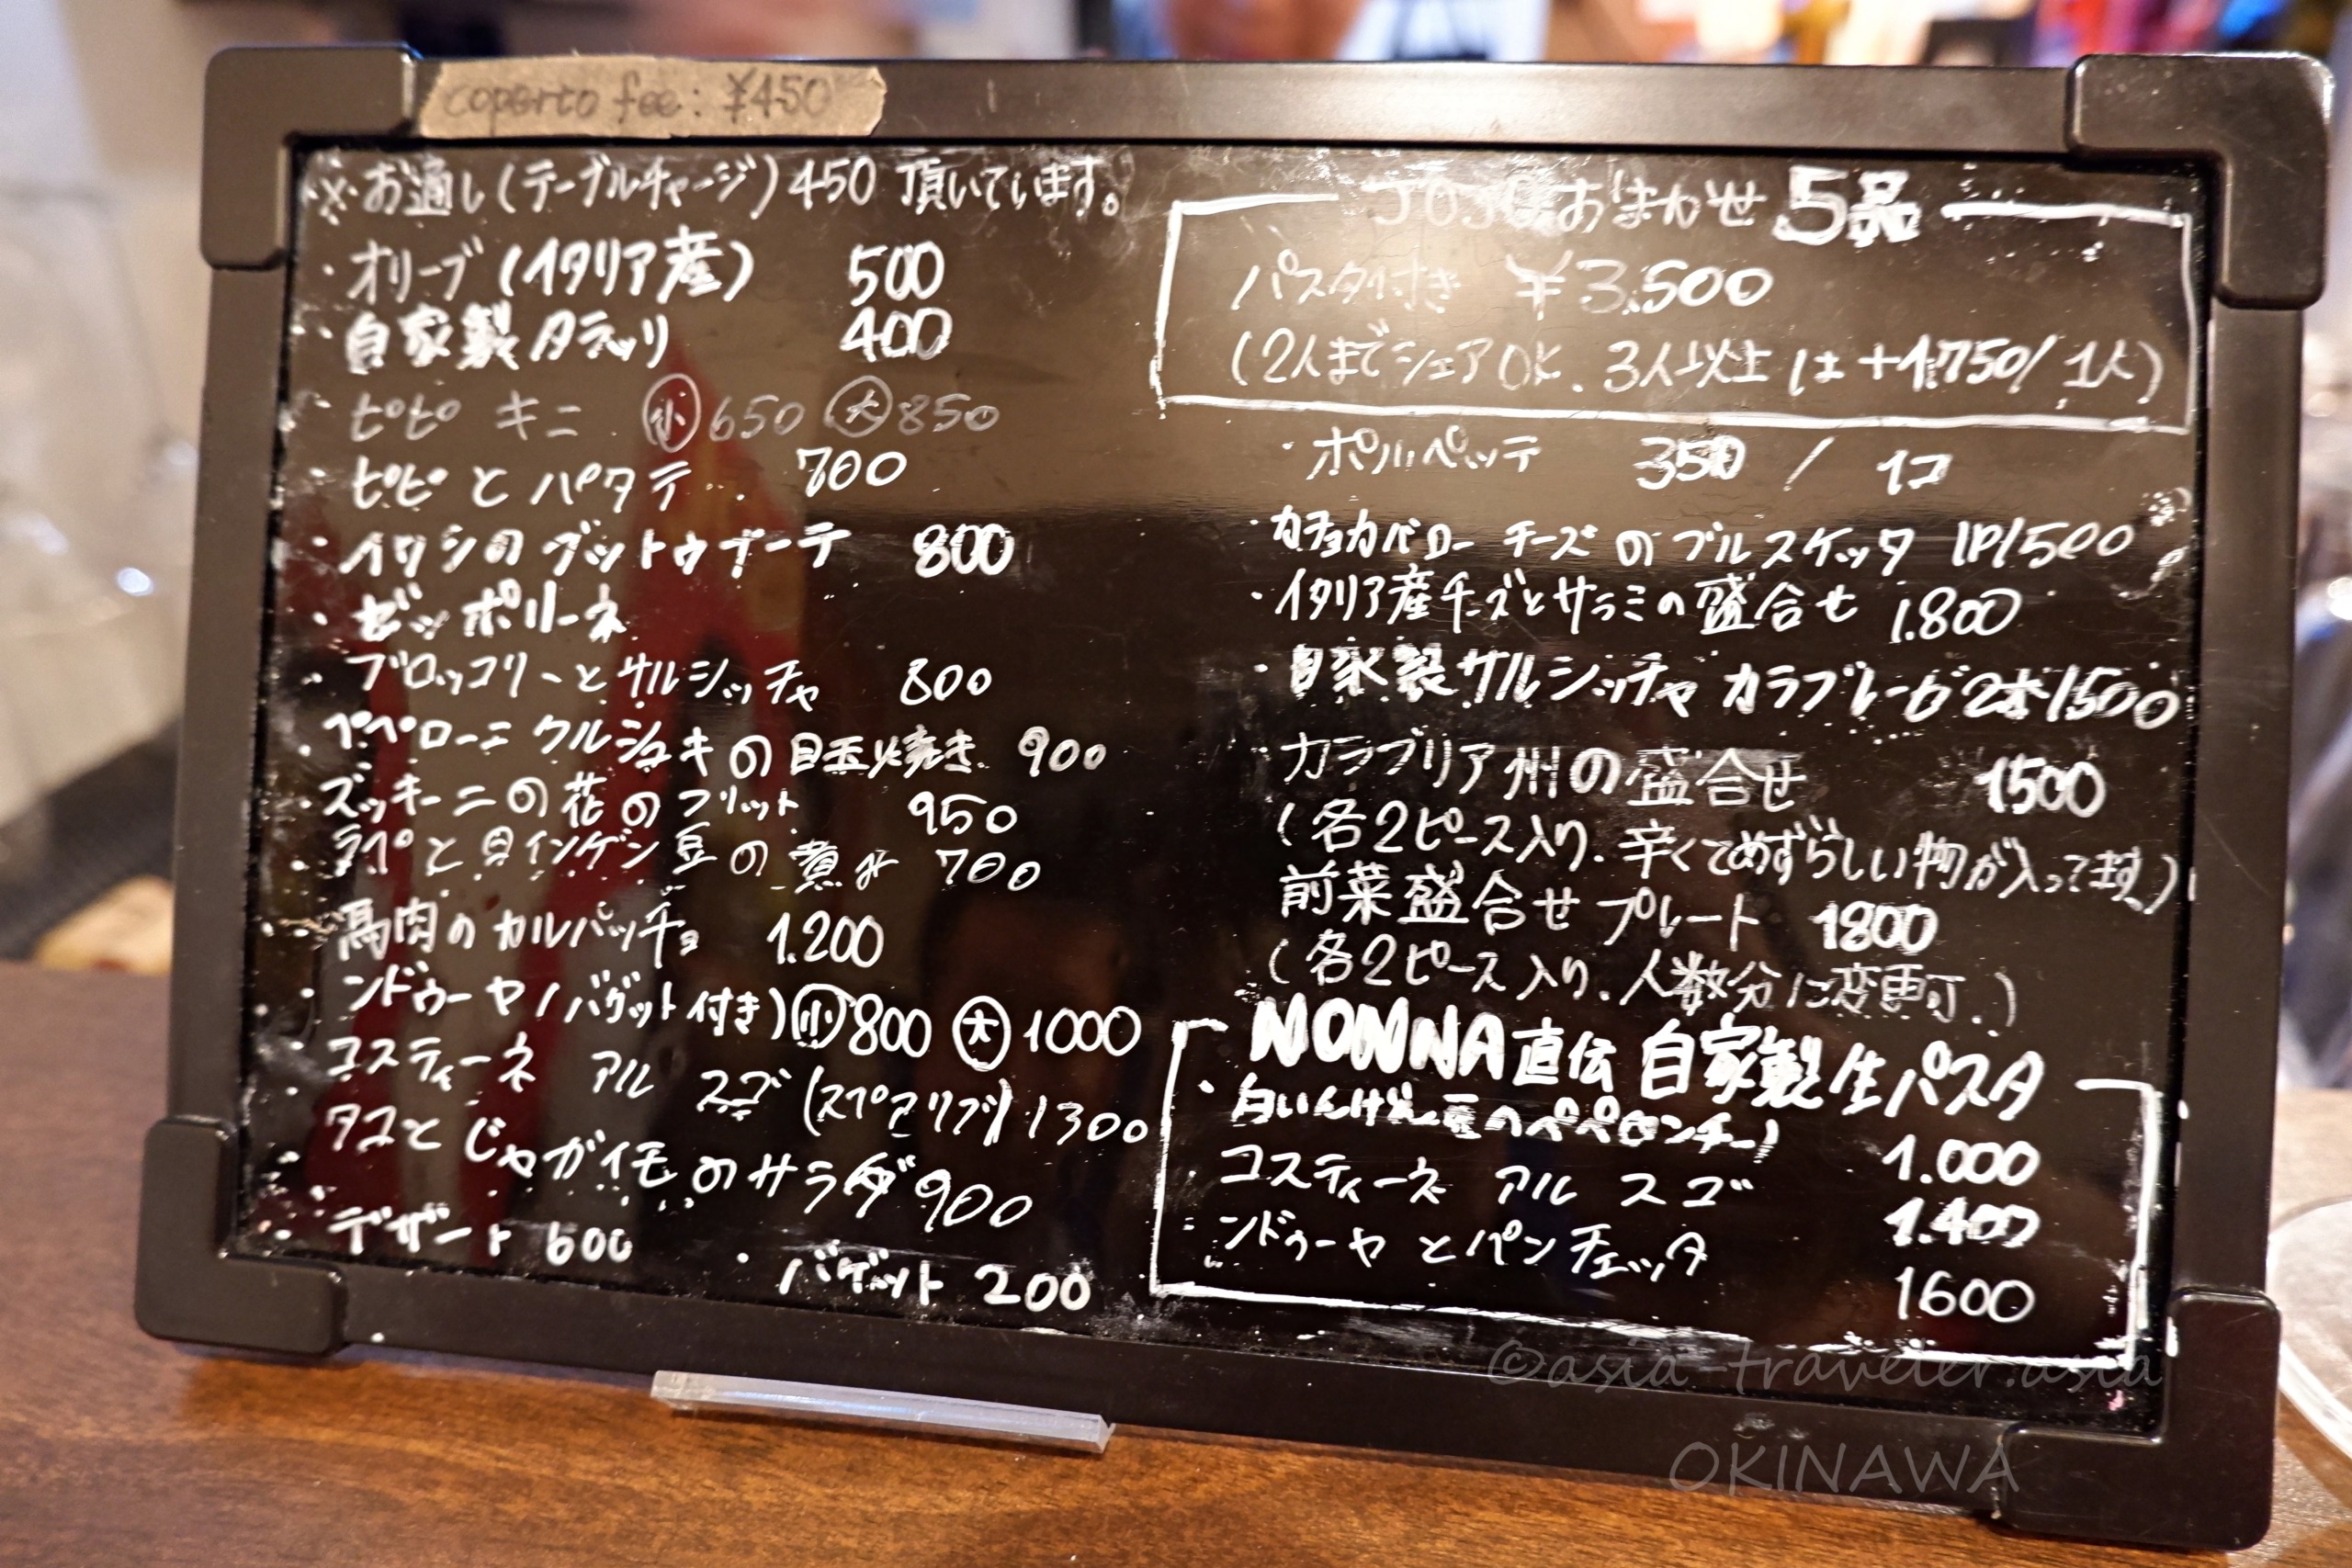 coperto fee: ¥450
※お通し(テーブルチャージ)450頂いています。
・オリーブ(イタリア産) 500
・自家製タラッリ 400
ピピ キニ 小650 大850
・ピピとパタテ 700
・イワシのグットゥブーテ 800
・ゼッポリーネ
・ブロッコリーとサルシッチャ 800
・ペペローニクルシュキの目玉焼き 900
・ズッキーニの花のフリット 950
・ラペと白インゲン豆の煮込 700
・馬肉のカルパッチョ 1.200
・ンドゥーヤ(バゲット付き)小800 大1000
・コスティーネ アル スゴ(スペアリブ)1300
・タコとじゃがイモのサラダ 900
・デザート 600
・バゲット 200
JOJOおまかせ5品
パスタ付き ¥3.500
(2人までシェアOK、3人以上は+1.750/1人)
・ポルペッテ 350/1コ
・カチョカバローチーズのブルスケッタ 1P/500
・イタリア産チーズとサラミの盛合せ 1.800
・自家製サルシッチャ カラブレーゼ2本1500
・カラブリア州の盛合せ 1500
(各2ピース入り.辛くてめずらしい物が入ってます)
前菜盛合せプレート 1800
(各2ピース入り.人数分に変更可.)
NONNA直伝 自家製生パスタ
・白いんげん豆のペペロンチーノ 1.000
・コスティーネ アル スゴ 1.400
・ンドゥーヤとパンチェッタ 1600
©asia-traveler.asia
OKINAWA